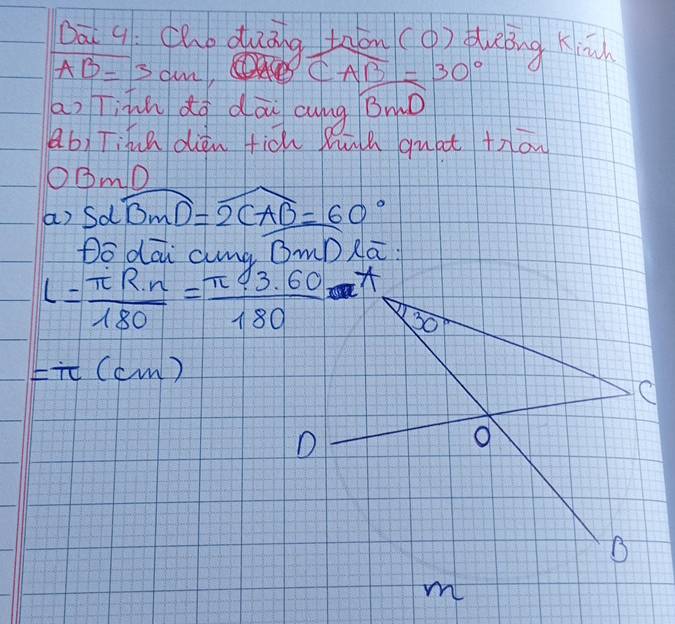 Bài 4: Cho đường tròn (O) đường kính
AB = 3 cm, CAB = 30°
a) Tính độ dài cung BmD
b) Tính diện tích hình quạt tròn
OBmD
a) Sđ BmD = 2CAB = 60°
Độ dài cung BmD là:
l = πR.n/180 = π.3.60/180
= π (cm)
A
30°
C
D
O
B
m